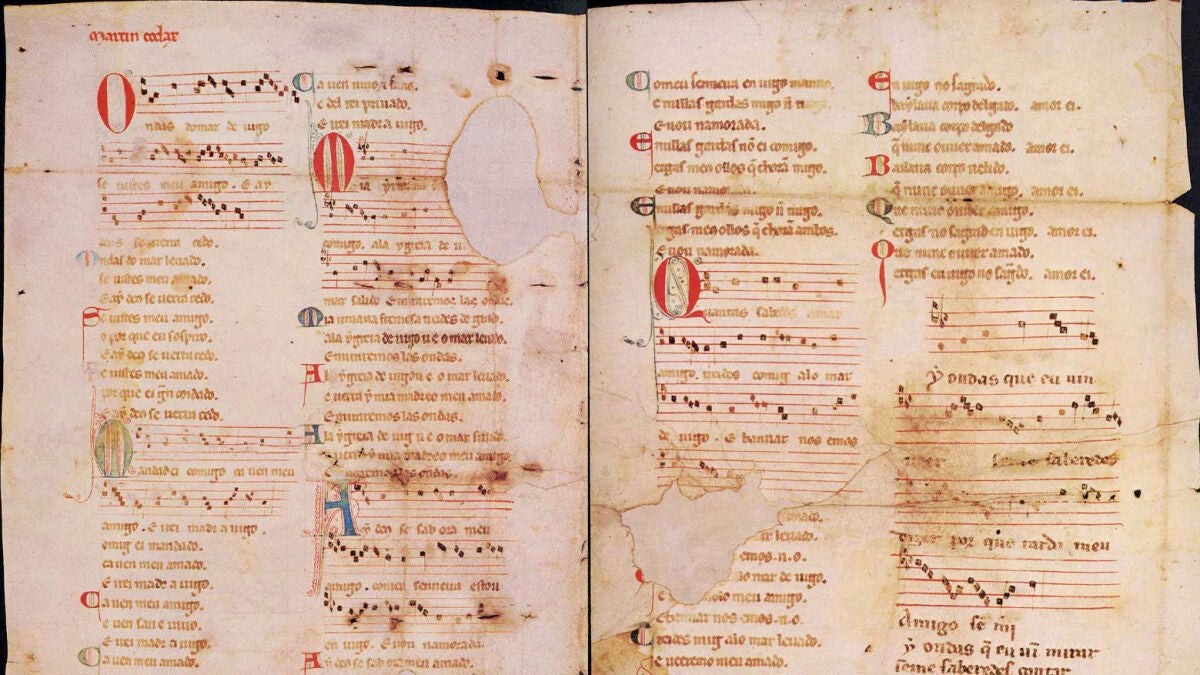 Martin codax
Ondas do mar de uigo
se uistes meu amigo. E ay
deus se uerra cedo.
Ondas do mar leuado.
se uistes meu amado.
E ay deus se uerra cedo.
Se uistes meu amigo.
o por que eu sospiro.
E ay deus se uerra cedo.
Se uistes meu amado.
por que ei gran coidado.
E ay deus se uerra cedo.
Mandad ei comigo ca uen meu
amigo. E irei madr a uigo.
comig ei mandado.
ca uen meu amado.
E irei madr a uigo.
Ca uen meu amigo.
e uen san e uiuo.
E irei madr a uigo.
Ca uen meu amado.
Ca uen uiuo e sano.
e del rei priuado.
E irei madr a uigo.
Mia yrmana
comigo. ala ygreia de
mar salido E miraremos las ondas.
Mia irmana fremosa treides de grado.
ala ygreia de uigo u e o mar leuado.
E miraremos las ondas.
A la ygreia de uigo u e o mar leuado.
e uerra y mia madre e meu amado.
E miraremos las ondas.
A la ygreia de uig u e o mar salido.
e uerra y mia madre e meu amigo.
E miraremos las ondas.
Ay deus se sab ora meu
amigo. comeu senneira estou
en uigo. E uou namorada.
Ay deus se sab ora meu amado.
Comeu senneira en uigo manno.
e nullas gardas migo non
E uou namorada.
E nullas gardas non ei comigo.
ergas meos ollos que choran migo.
E uou namorada.
E nullas gardas migo non
ergas meos ollos que choran ambos.
E uou namorada.
Quantas sabedes amar
amigo. treides comig alo mar
de uigo. E bannar nos emos
mar leuado.
emos. n. o.
lo mar de uigo.
meu amigo.
E bannar nos emos. n. o.
Treides mig alo mar leuado.
e ueeremo meu amado.
En uigo no sagrado.
baylaua corpo delgado. amor ei.
Baylaua corpo delgado
que nunc ouuer amado. amor ei.
Bailaua corpo uelido.
que nunc ouuer amigo. amor ei.
Que nunc ouuer amigo.
ergas no sagrad en uigo. amor ei.
Que nunc ouuer amado.
ergas en uigo no sagrado. amor ei.
Ay ondas que eu uin
ueer se me saberedes
dizer por que tarda meu
Amigo sen mi
Ay ondas que eu uin mirar
se me saberedes contar